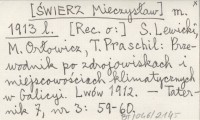 [ŚWIERZ Mieczysław] m.
1913 l. [Rec. o:] S. Lewicki,
M. Orłowicz, T. Praschil: Prze-
wodnik po zdrojowiskach i
miejscowościach klimatycznych
w Galicji. Lwów 1912. — Tater-
nik 7, nr 3: 59-60.